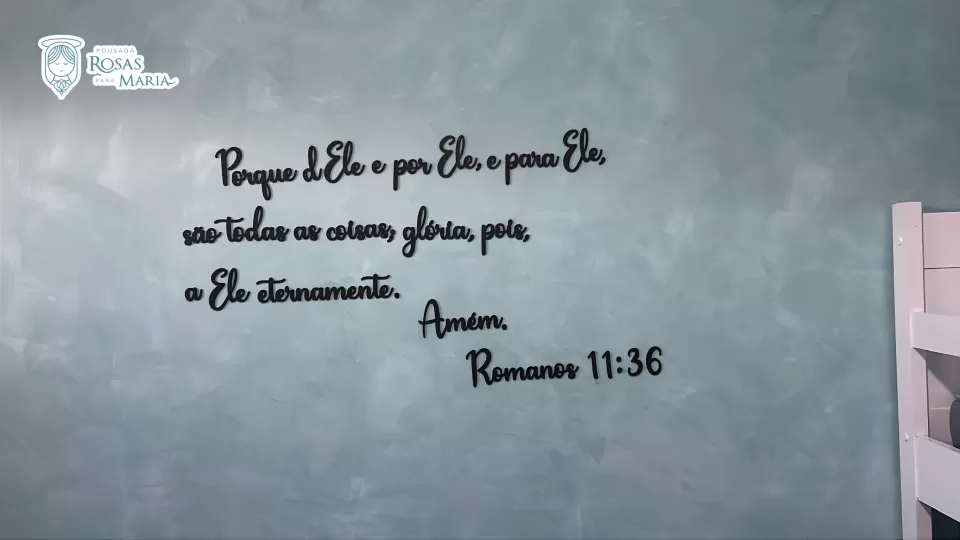 POUSADA
ROSAS
PARA MARIA
Porque dEle e por Ele, e para Ele,
são todas as coisas; glória, pois,
a Ele eternamente.
Amém.
Romanos 11:36